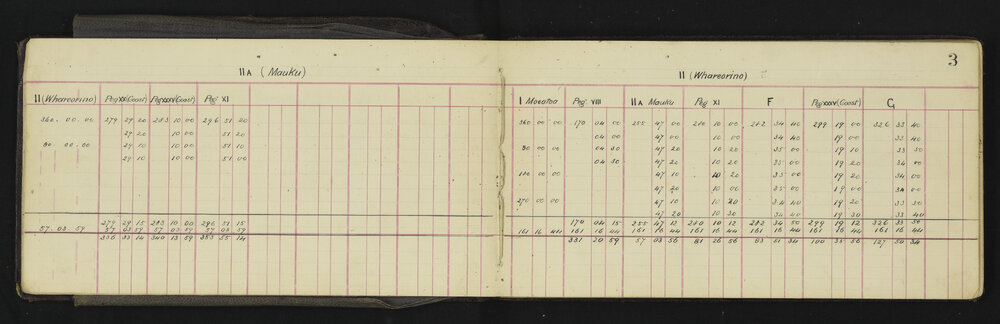 3
II A (Mauku)
II (Whareorino) Peg XX (Coast) Peg XXXV (Coast) Peg XI
360 . 00 . 00 279 29 20 283 10 00 296 51 20
29 20 10 00 51 20
90 . 00 . 00 29 10 10 00 51 10
29 10 10 00 51 00
279 29 15 283 10 00 296 51 15
57 . 03 . 59 57 03 59 57 03 59 57 03 59
336 33 14 340 13 59 353 55 14
II (Whareorino)
I Moeatoa Peg VIII II A Mauku Peg XI F Peg XXXV (Coast) G
360 00 00 170 04 00 255 47 00 280 10 00 282 34 40 299 19 00 326 33 40
04 00 47 00 10 00 34 40 19 00 33 40
90 00 00 04 30 47 20 10 20 35 00 19 10 33 50
04 30 47 20 10 20 35 00 19 20 34 00
180 00 00 47 10 10 20 35 00 19 20 34 00
47 20 10 00 35 00 19 00 34 00
270 00 00 47 10 10 20 34 40 19 20 33 50
47 20 10 30 34 40 19 20 33 40
170 04 15 255 47 12 280 10 12 282 34 50 299 19 12 326 33 50
161 16 44 161 16 44 161 16 44 161 16 44 161 16 44 161 16 44 161 16 44
331 20 59 57 03 56 81 26 56 83 51 34 100 35 56 127 50 34